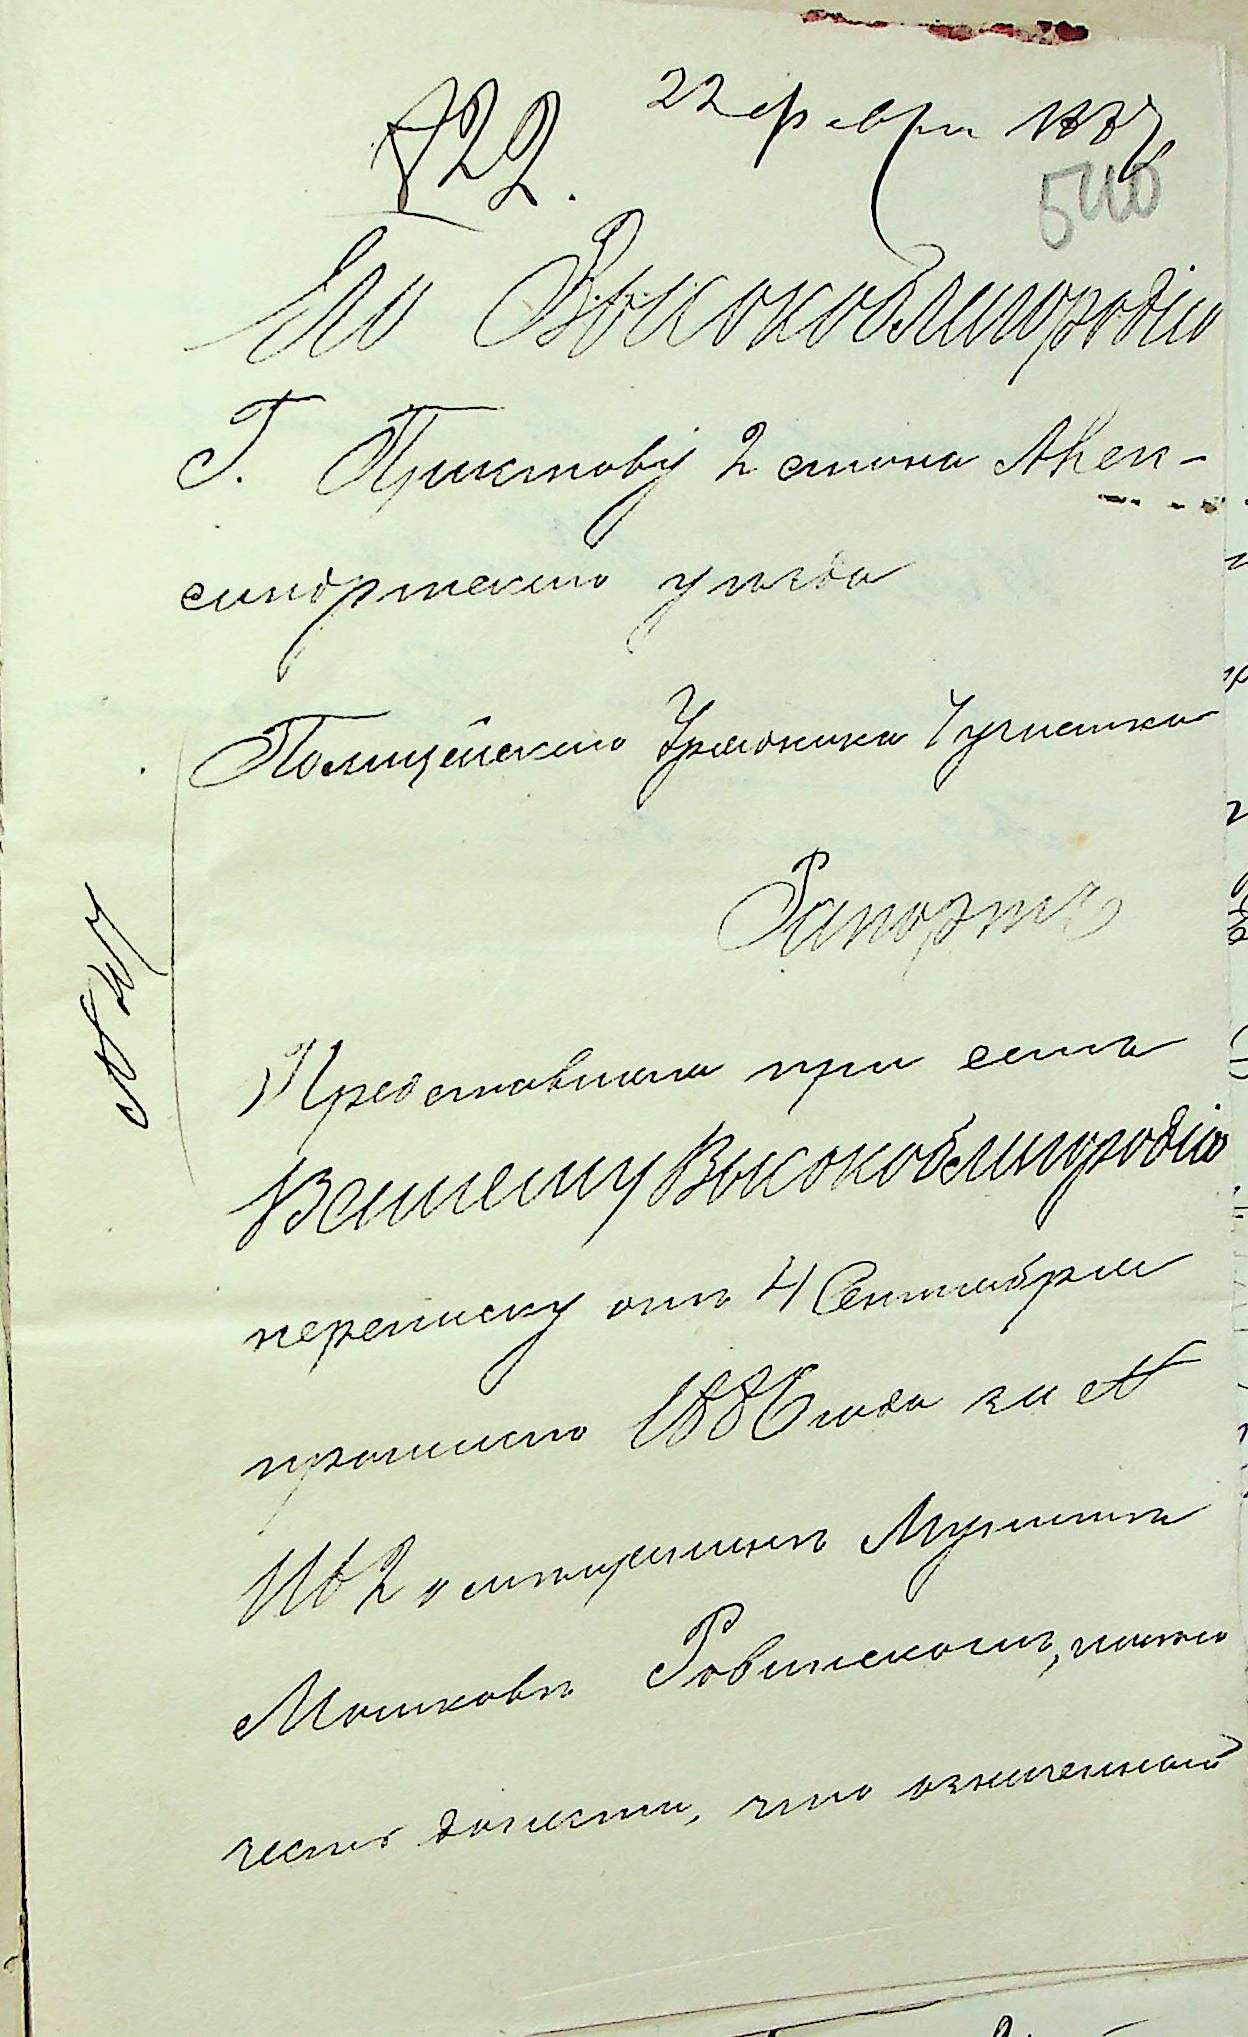 822.
22 февра 1887
540
Его Высокоблагородію
Г. Приставу 2 стана Алек-
сандрійскаго уѣзда
Полицейскаго Урядника 7 участка
Рапортъ
Представляя при семъ
Вашему Высокоблагородію
переписку отъ 4 Сентября
прошлаго 1886 года за №
1162 о мѣщанинѣ
Мошковѣ Ровинскомъ, имѣю
честь донести, что означенный